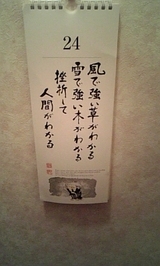 24
風で強い草がわかる
雪で強い木がわかる
挫折して
人間がわかる